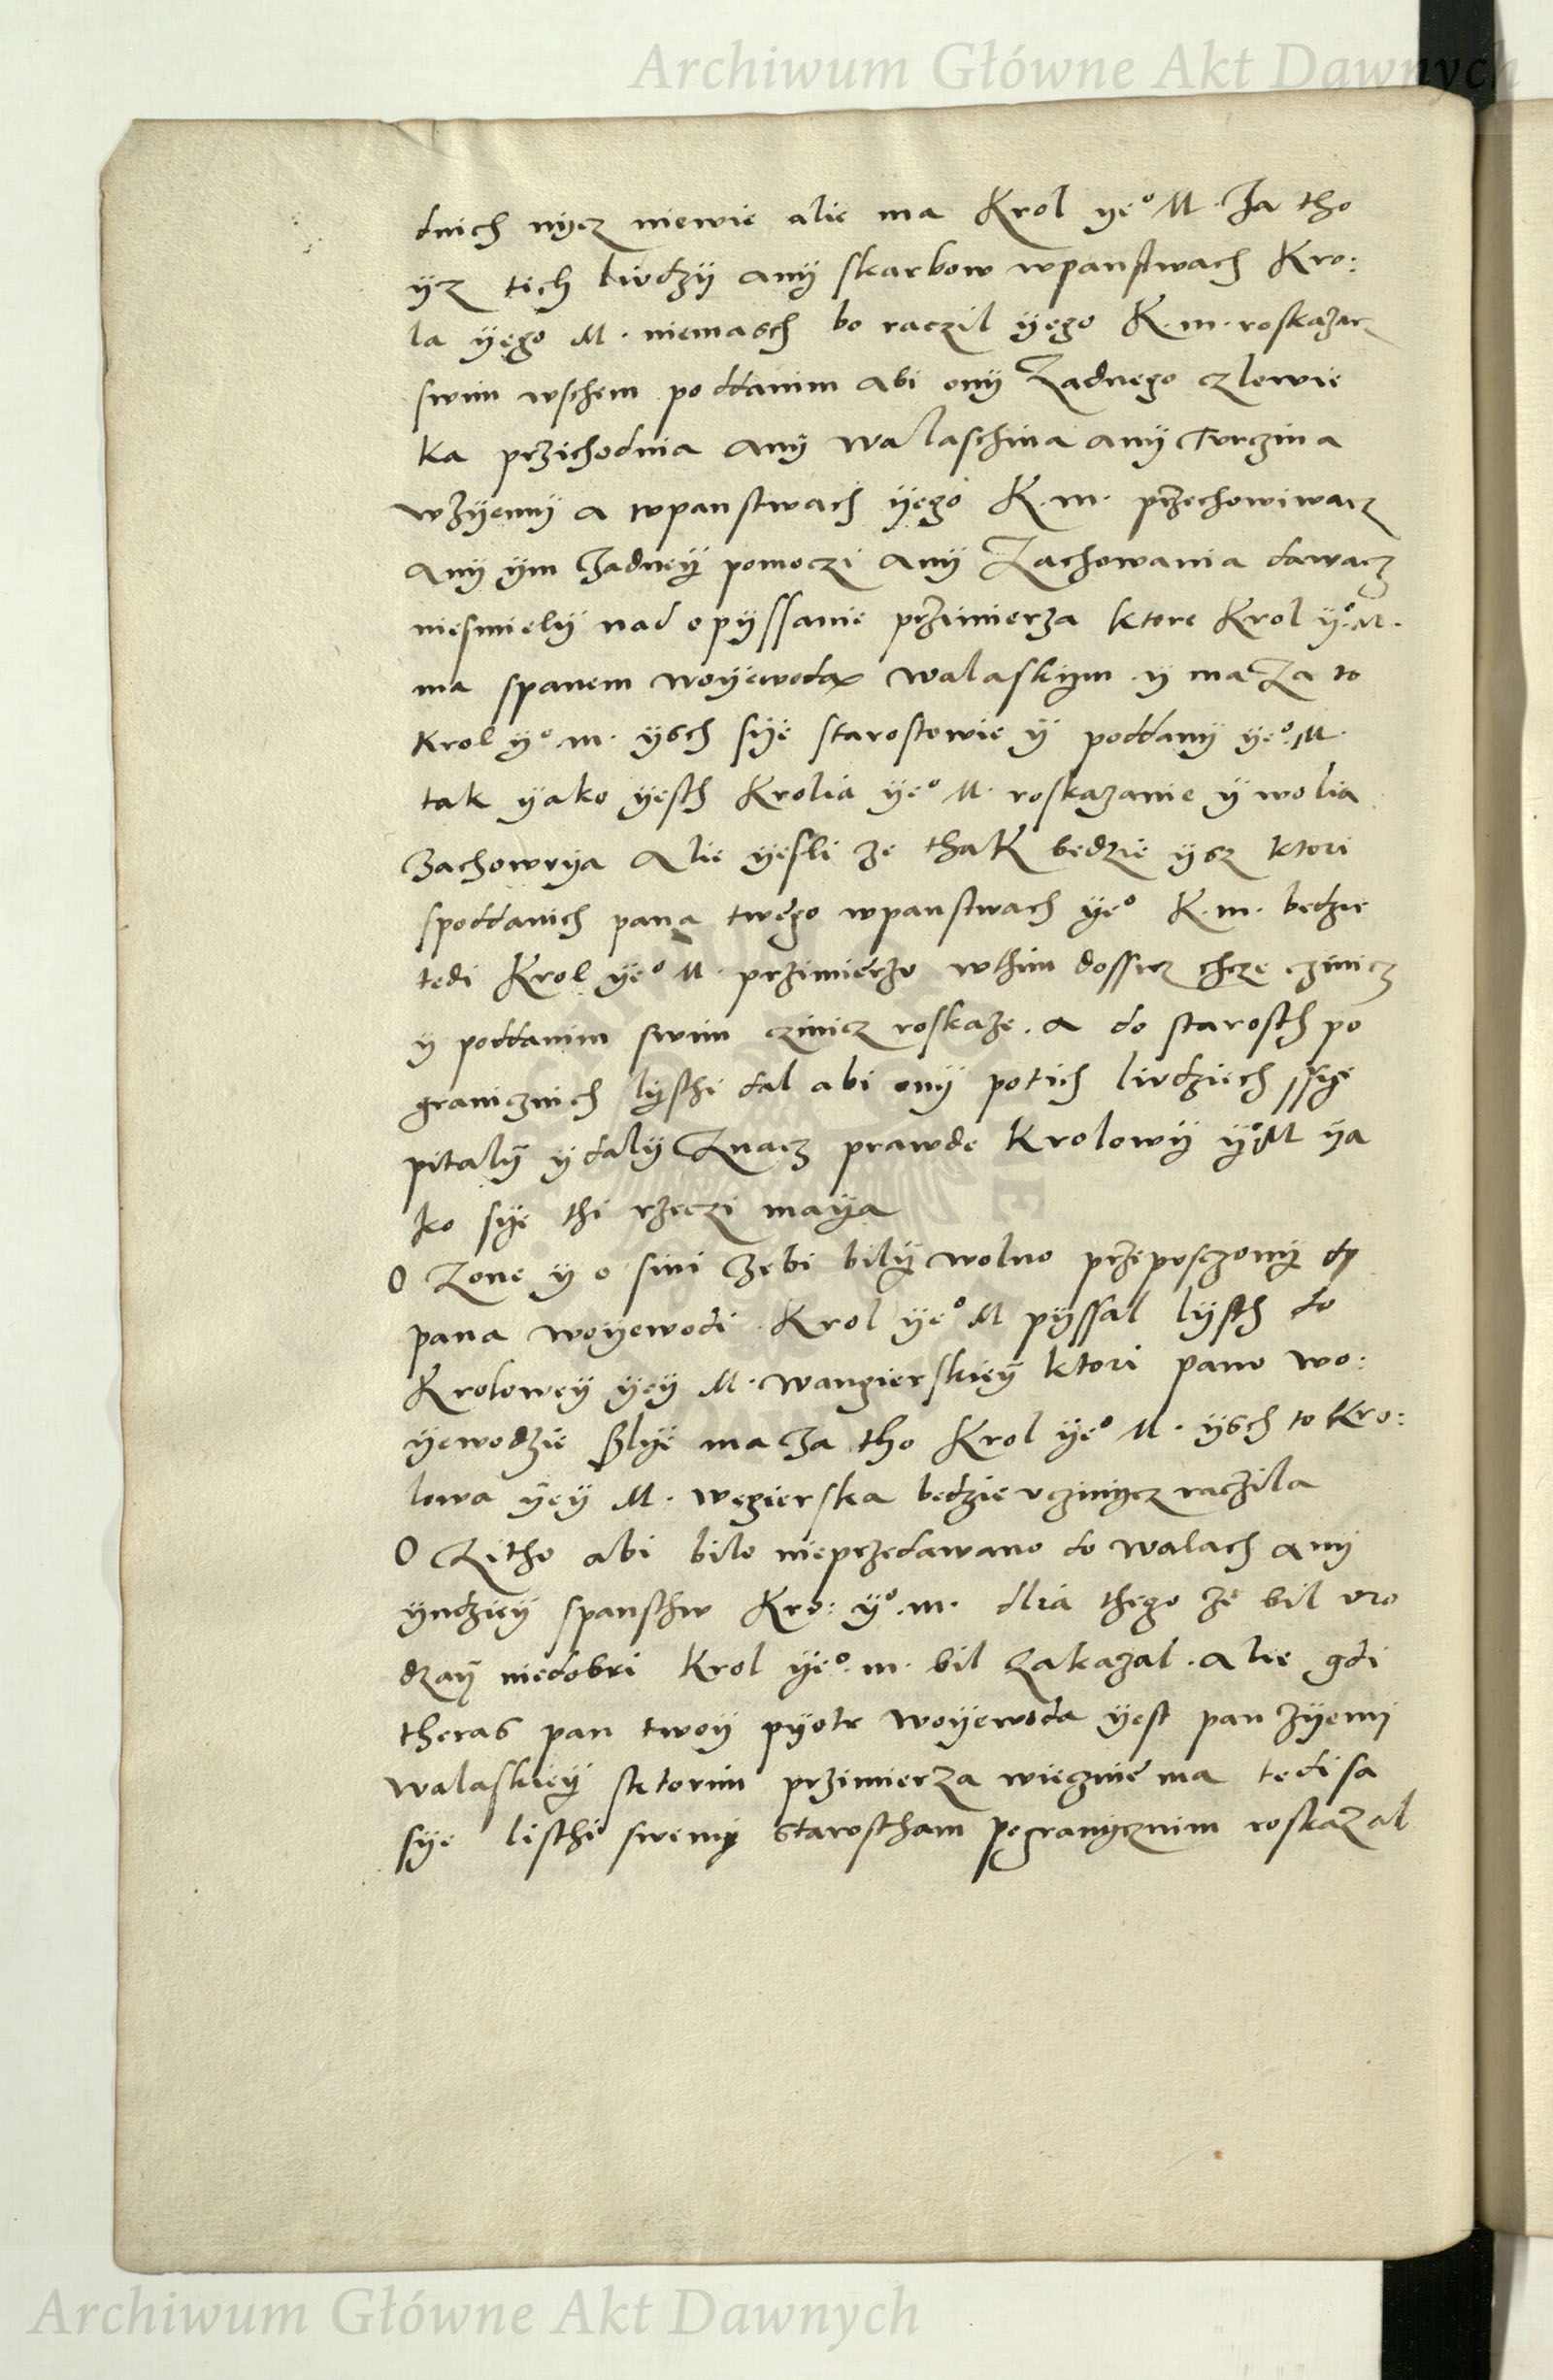 Archiwum Główne Akt Dawnych
dnich nycz niewie alie ma Krol ye° M. Za tho
ysz tich liudzy any skarbow wpanstwach Kro:
la yego M. niemasch bo raczil yego K.m. roskazacz
swim wschem poddanim abi ony Zadnego czlowie
ka przichodnia any walaschina any Turczina
wzyemy a wpanstwach yego K.m. przechowiwacz
any ym Zadney pomoczi any Zachowania dawacz
niesmiely nad opyssanie przimierza ktore Krol y° M.
ma spanem woyewoda walaskym y ma Za to
Krol y° m. ysch sye starostowie y poddany ye° M.
tak yako yesth Krolia ye° M. roskazanie y wolia
Zachowuya Alie yesli ze thak bedzie ysz ktori
spoddanich pana twego wpanstwach ye° K.m. bedzie
tedi Krol ye° M. przimierzo wthim dossicz chcze czinicz
y poddanim swim czinicz roskaze. a do starosth po
granicznich lysthi dal abi ony potich liudziech ssye
pitaly y daly Znacz prawde Krolowy y° M ya
ko sye thi rzeczi maya
O Zone y o sini Zebi bily wolno przepusczony do
pana woyewodi. Krol ye° M pyssal lysth do
Krolowey yey M. wangierskiey ktori pano wo:
yewodzie szlye ma Za tho Krol ye° M. ysch to Kro:
lowa yey M. wegierska bedzie uczinycz raczila
O Zitho abi bilo nieprzedawano do walach any
yndziey spansthw Kro: y° m. dlia thego ze bil uro
dzay niedobri Krol ye° m. bil Zakazal. alie gdi
theras pan twoy pyotr woyewoda yest pan Zyemi
walaskiey sktorim przimierza wiecznie ma tedi sa
sye listhi swemy starostham pogranycznim roskazal
Archiwum Główne Akt Dawnych